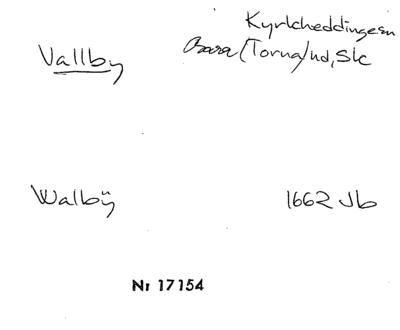 Kyrkheddinge sn
Vallby Bara (Torna) hd, Sk
Walbÿ 1662 Jb
Nr 17154